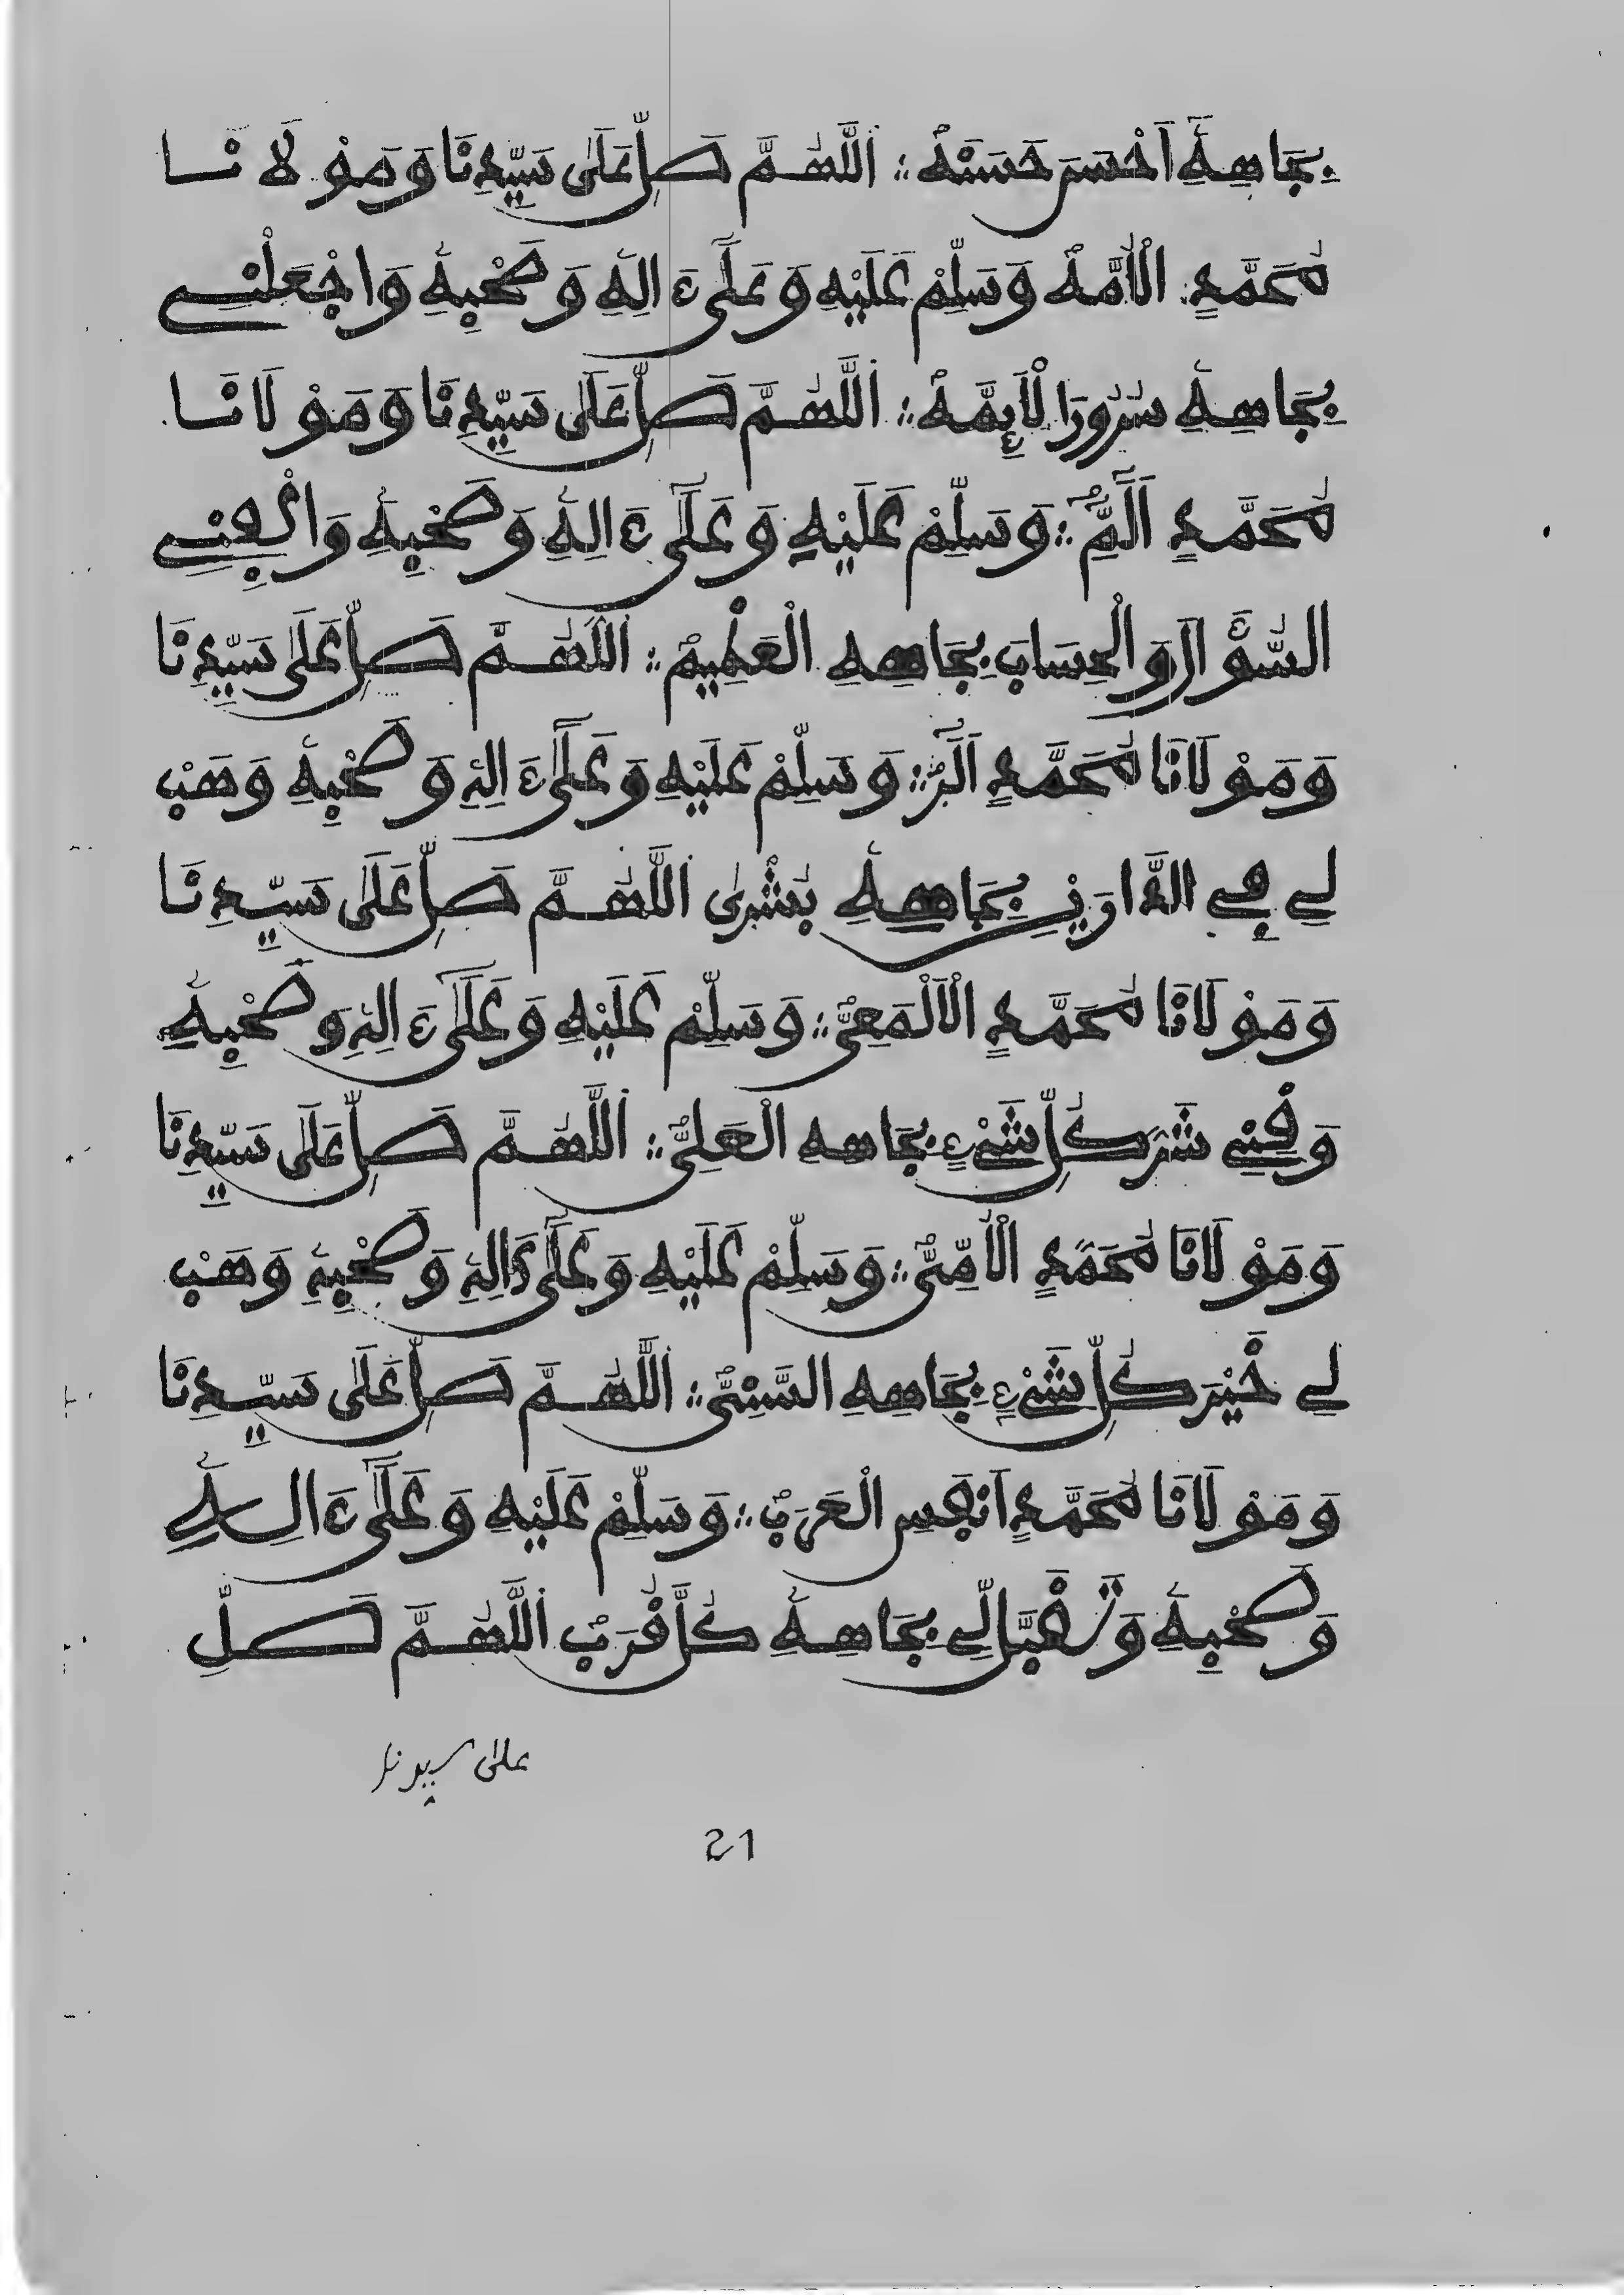 بِجَاهِهِ أَحْسَنَ حَسَنَهْ ؞ اَللَّهُمَّ صَلِّ عَلَى سَيِّدِنَا وَمَوْلَانَا
مُحَمَّدٍ الْأُمَّهْ وَسَلِّمْ عَلَيْهِ وَعَلَىٰ ءَالِهِ وَصَحْبِهِ وَاجْعَلْنِے
بِجَاهِهِ سُرُورَ الْأَئِمَّهْ ؞ اَللَّهُمَّ صَلِّ عَلَى سَيِّدِنَا وَمَوْلَانَا
مُحَمَّدٍ اَلَمِّ ؞ وَسَلِّمْ عَلَيْهِ وَعَلَىٰ ءَالِهِ وَصَحْبِهِ وَاكْفِنِے
السُّؤَالَ وَالْحِسَابَ بِجَاهِهِ الْعَظِيمْ ؞ اَللَّهُمَّ صَلِّ عَلَى سَيِّدِنَا
وَمَوْلَانَا مُحَمَّدٍ اَلَمِّرْ ؞ وَسَلِّمْ عَلَيْهِ وَعَلَىٰ ءَالِهِ وَصَحْبِهِ وَهَبْ
لِے فِے الدَّارَيْنِ بِجَاهِهِ بُشْرَى اَللَّهُمَّ صَلِّ عَلَى سَيِّدِنَا
وَمَوْلَانَا مُحَمَّدٍ الْأَلْمَعِيِّ ؞ وَسَلِّمْ عَلَيْهِ وَعَلَىٰ ءَالِهِ وَصَحْبِهِ
وَقِنِے شَرَّ كُلِّ شَيْءٍ بِجَاهِهِ الْعَلِيِّ ؞ اَللَّهُمَّ صَلِّ عَلَى سَيِّدِنَا
وَمَوْلَانَا مُحَمَّدٍ الْأُمِّيِّ ؞ وَسَلِّمْ عَلَيْهِ وَعَلَىٰ ءَالِهِ وَصَحْبِهِ وَهَبْ
لِے خَيْرَ كُلِّ شَيْءٍ بِجَاهِهِ السَّنِيِّ ؞ اَللَّهُمَّ صَلِّ عَلَى سَيِّدِنَا
وَمَوْلَانَا مُحَمَّدٍ أَنْفَسِ الْعَرَبْ ؞ وَسَلِّمْ عَلَيْهِ وَعَلَىٰ ءَالِهِ
وَصَحْبِهِ وَتَقَبَّلْ لِے بِجَاهِهِ كُلَّ قُرَبْ اَللَّهُمَّ صَلِّ
على سيدنا
21